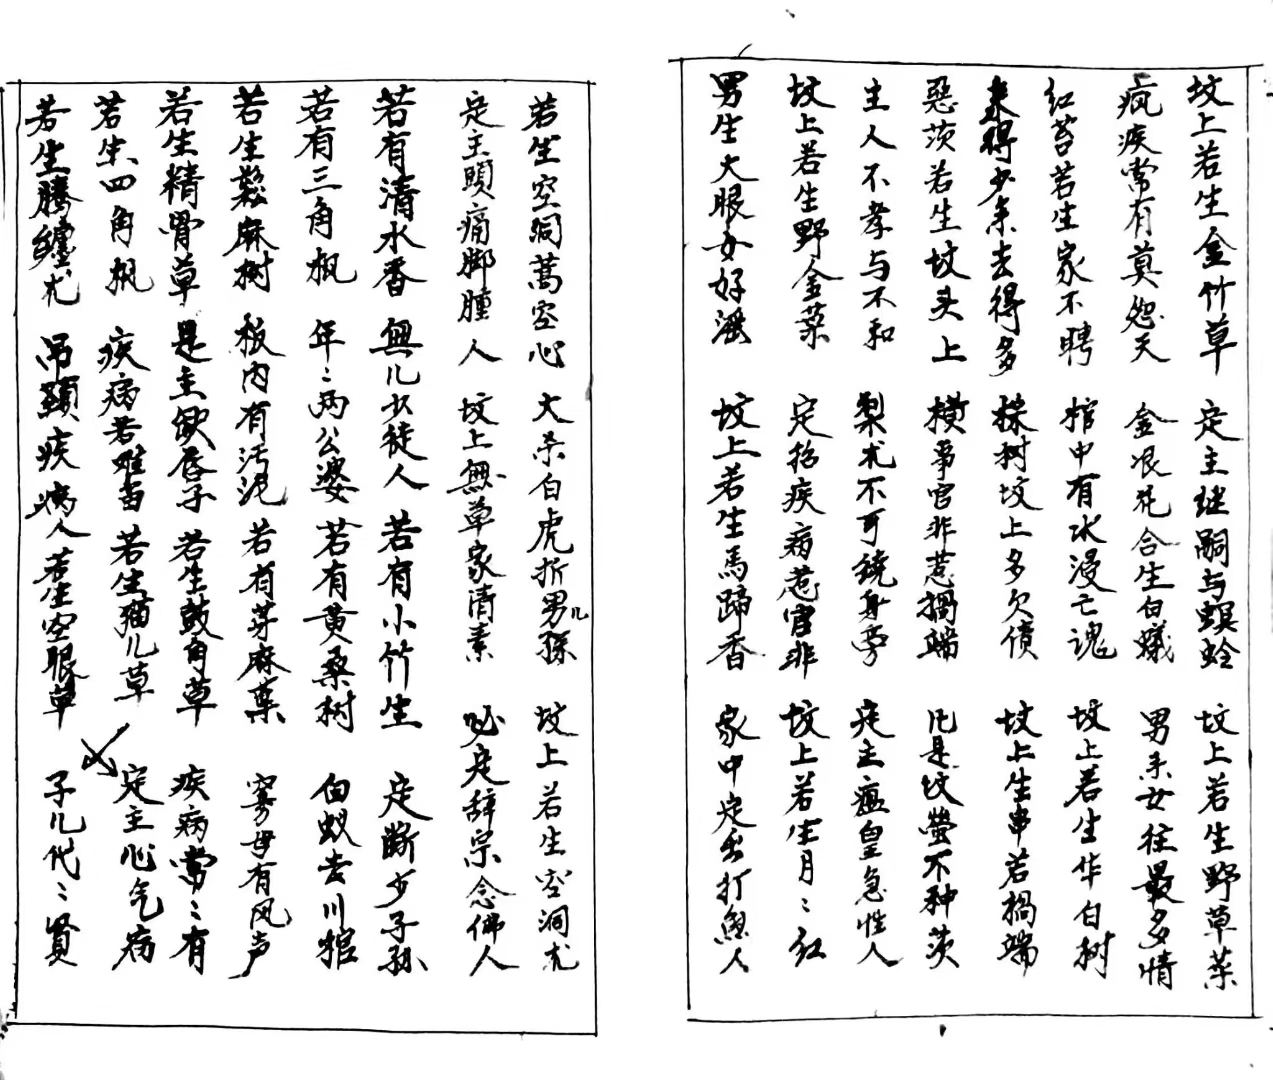 坟上若生金竹草 定主继嗣与螟蛉 坟上若生野草菜
疯疾常有莫怨天 金银花合生白蚁 男来女往最多情
红苔若生家不聘 棺中有水浸亡魂 坟上若生华白树
来得少来去得多 株树坟上多欠债 坟上生串若祸端
恶茨若生坟头上 横事官非惹祸端 凡是坟茔不种茨
主人不孝与不和 梨尤不可绕身旁 定主瘟皇急性人
坟上若生野金菜 定招疾病惹官非 坟上若生月〻红
男生大眼女好滛 坟上若生馬蹄香 家中定出打魚人
若生空洞蒿空心 大杀白虎折男儿孫 坟上若生空洞尤
定主頭痛脚腫人 坟上無草家清素 必定辞宗念佛人
若有清水香 無儿女徒人 若有小竹生 定断少子孙
若有三角枫 年〻两公婆 若有黄桑树 白蚁去川棺
若生鬆麻树 板内有污泥 若有芽麻菜 寡母有风声
若生精骨草 是主缺唇子 若生鼓角草 疾病常〻有
若生四角枫 疾病若难当 若生猫儿草 定主心气病
若生騰纏尤 吊頸疾病人 若生空眼草 子儿代〻贤